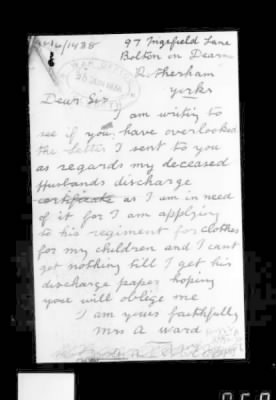 97 Ingsfield Lane
Bolton on Dearne
Rotherham
Yorks
Dear Sir
I am writing to
see if you have overlooked
the letter I sent to you
as regards my deceased
Husbands discharge
certificate as I am in need
of it for I am applying
to his regiment for clothes
for my children and I cant
get nothing till I get his
discharge paper hoping
youe will oblige me
I am yours faithfully
Mrs A Ward